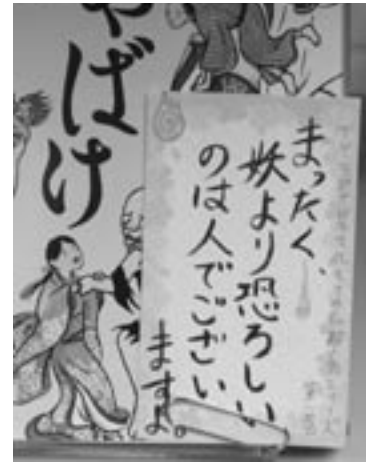 ゃばけ
まったく、
妖より恐ろしい
のは人でござい
ますよ。